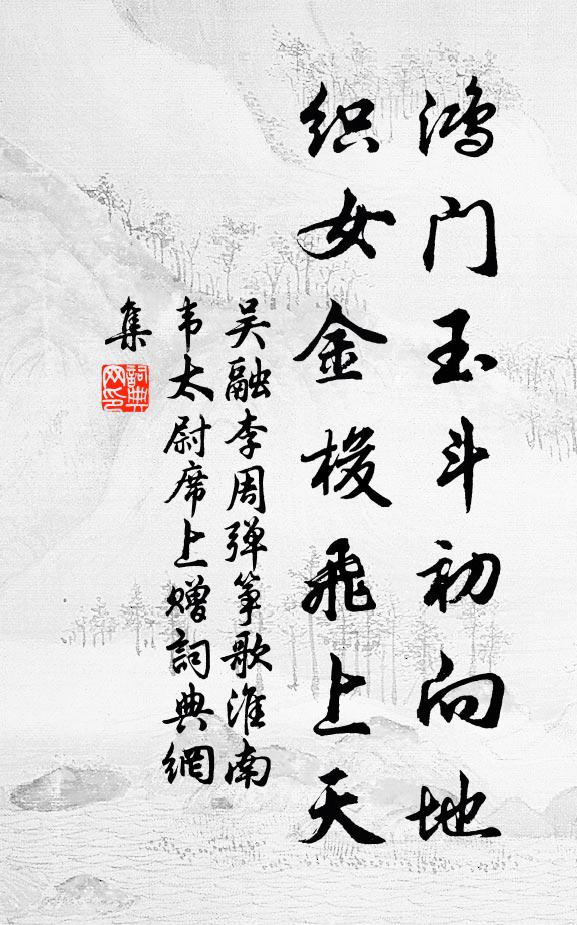 鸿门玉斗初向地
织女金梭飛上天
吴融李周弹筝歌淮南
韦太尉席上赠詞典網
集
詞典網印